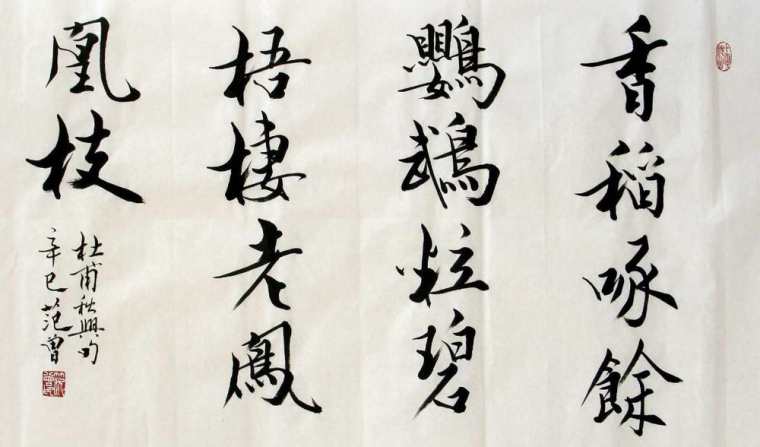 香稻啄餘
鸚鵡粒碧
梧棲老鳳
凰枝
杜甫秋興句
辛巳范曾